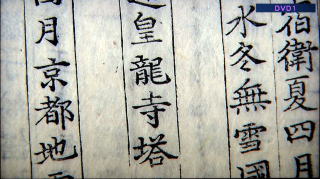 DVD1
伯衛夏四月
水冬無雪國
皇龍寺塔
月京都地